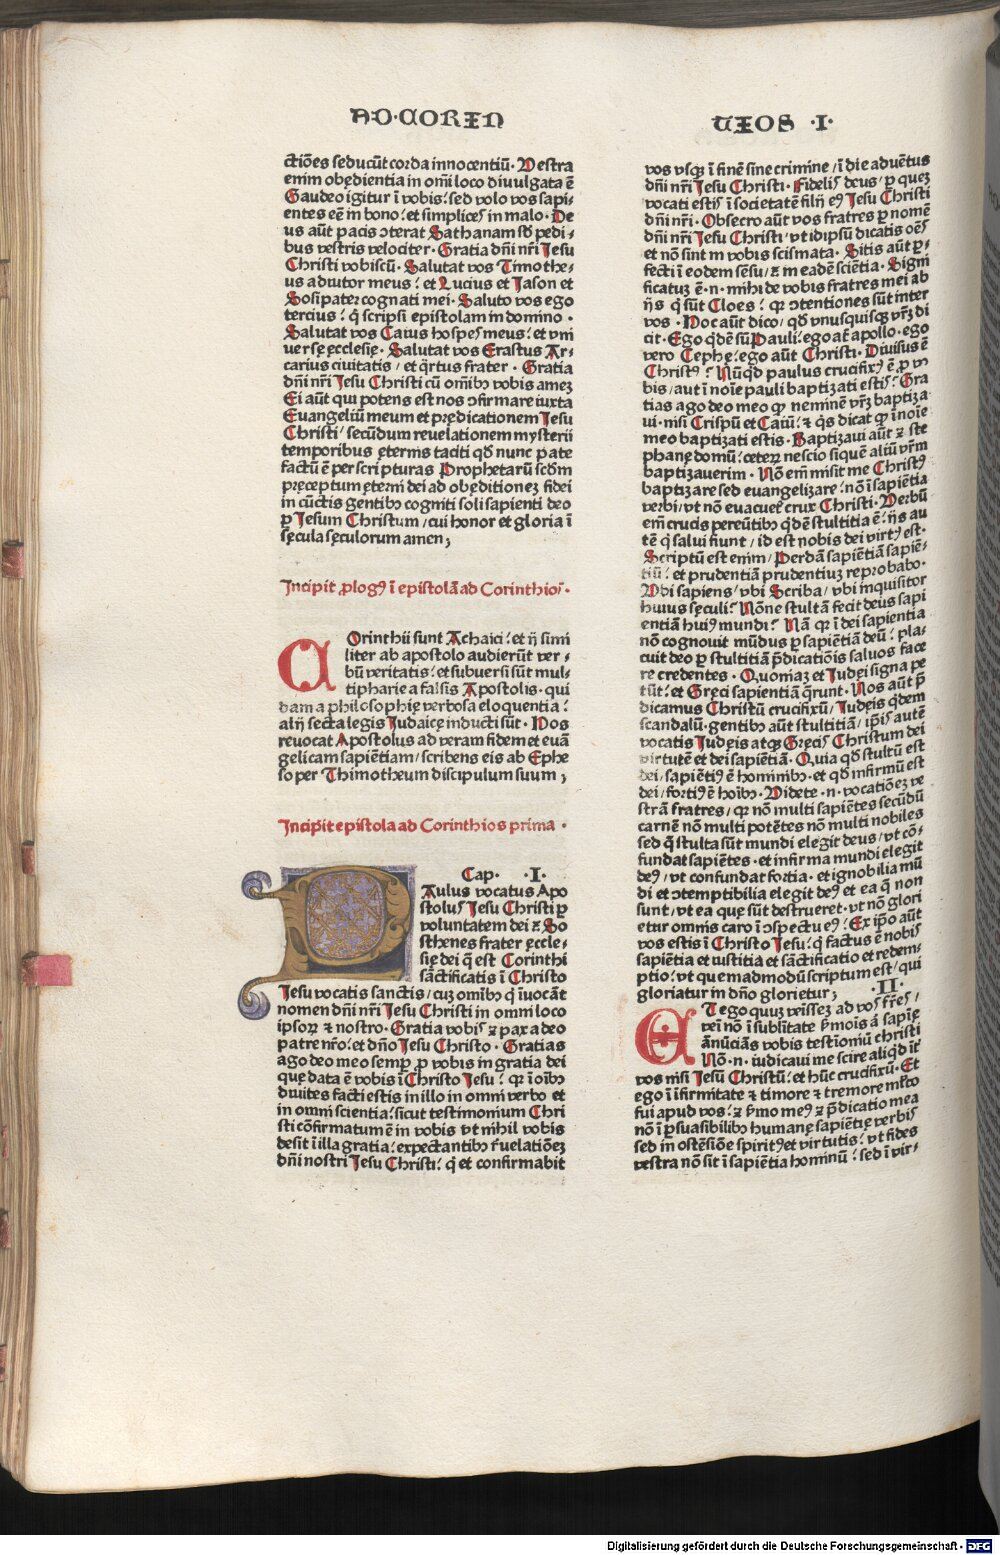 AD·CORIN
ctiōes seducūt corda innocentiū· Vestra
enim obędientia in om̄i loco diuulgata ē
Gaudeo igitur ī vobis: sed volo vos sapi-
entes eē in bono: et simplices in malo· De
us aūt pacis ɔterat Sathanam sb̄ pedi-
bus vestris velociter· Gratia dn̄i nr̄i Jesu
Christi vobiscū· Salutat vos Timothe-
us adiutor meus: et Lucius et Jason et
Sosipater cognati mei· Saluto vos ego
tercius: q̇ scripsi epistolam in domino·
Salutat vos Caius hospes meus: et vni
uersę ecclesię· Salutat vos Erastus Ar-
carius ciuitatis / et q̇rtus frater· Gratia
dn̄i nr̄i Jesu Christi cū omībꝫ vobis ameꝫ
Ei aūt qui potens est nos ɔfirmare iuxta
Euangeliū meum et prędicationem Jesu
Christi / secūdum reuelationem mysterii
temporibus ęternis taciti qd̄ nunc pate
factū ē per scripturas Prophetarū scd̄m
pręceptum ęterni dei ad obęditioneꝫ fidei
in cūctis gentibꝫ cogniti soli sapienti deo
ꝑ Jesum Christum / cui honor et gloria ī
sęcula sęculorum amen;
Incipit ꝓlogꝰ ī epistolā ad Corinthios·
COrinthii sunt Achaici: et ij simi
liter ab apostolo audierūt ver-
bū veritatis: et subuersi sūt mul-
tipharie a falsis Apostolis· qui
dam a philosophię verbosa eloquentia:
alij secta legis Judaicę inducti sūt· Hos
reuocat Apostolus ad veram fidem et euā
gelicam sapiētiam / scribens eis ab Ephe
so per Thimotheum discipulum suum;
Incipit epistola ad Corinthios prima·
Cap· ·I·
PAulus vocatus Apo
stolus Jesu Christi ꝑ
voluntatem dei ⁊ So
sthenes frater ęccle-
się dei q̄ est Corinthi
sāctificatis ī Christo
Jesu vocatis sanctis / cuꝫ omībꝫ q̇ īuocāt
nomen dn̄i nr̄i Jesu Christi in omni loco
ipsoꝝ ⁊ nostro· Gratia vobis ⁊ pax a deo
patre nr̄o: et dn̄o Jesu Christo· Gratias
ago deo meo semꝑ ꝓ vobis in gratia dei
quę data ē vobis ī Christo Jesu: qꝛ ī oībꝫ
diuites facti estis in illo in omni verbo et
in omni scientia: sicut testimonium Chri
sti cōfirmatum ē in vobis vt nihil vobis
desit ī illa gratia: expectantibꝫ r̄uelatiōeꝫ
dn̄i nostri Jesu Christi: q̇ et confirmabit
THIOS ·I·
vos vsqꝫ ī finē sine crimine / ī die aduētus
dn̄i nr̄i Jesu Christi· Fidelis deus / ꝑ queꝫ
vocati estis ī societatē filij eꝰ Jesu Christi
dn̄i nr̄i· Obsecro aūt vos fratres ꝑ nomē
dn̄i nr̄i Jesu Christi / vt idipsū dicatis oēs
et nō sint in vobis scismata· Sitis aūt ꝑ-
fecti ī eodem sēsu / ⁊ in eadē sciētia· Signi
ficatuꝫ ē·n·mihi de vobis fratres mei ab
ijs q̇ sūt Cloes: qꝛ ɔtentiones sūt inter
vos· Hoc aūt dico / qd̄ vnusquisqꝫ vr̄ꝫ di
cit· Ego q̇dē sū Pauli: ego aū apollo· ego
vero Cephę: ego aūt Christi· Diuisus ē
Christꝰ: Nūq̇d paulus crucifixꝰ ē ꝓ vo
bis / aut ī noīe pauli baptizati estis: Gra
tias ago deo meo qꝛ neminē vr̄ꝫ baptiza
ui· nisi Crispū et Caiū: ⁊ q̇s dicat qꝛ ī noīe
meo baptizati estis· Baptizaui aūt ⁊ ste
phanę domū: ceteꝝ nescio si quē aliū vr̄m
baptizauerim· Nō em̄ misit me Christꝰ
baptizare sed euangelizare: nō ī sapiētia
verbi / vt nō euacuet̄ crux Christi· Verbū
em̄ crucis pereūtibꝫ q̇dē stultitia ē: ijs au
tē q̇ salui fiunt / id est nobis dei virtꝰ est·
Scriptū est enim / Perdā sapiētiā sapiē-
tiū: et prudentiā prudentiuꝫ reprobabo·
Vbi sapiens / vbi Scriba / vbi inquisitor
huius sęculi: Nōne stultā fecit deus sapi
entiā huiꝰ mundi: Nā qꝛ ī dei sapientia
nō cognouit mūdus ꝑ sapiētiā deū: pla-
cuit deo ꝑ stultitiā p̄dicatiōis saluos face
re credentes· Quoniaꝫ et Judęi signa pe
tūt: et Gręci sapientiā q̄runt· Nos aūt p̄
dicamus Christū crucifixū / Judęis q̇dem
scandalū· gentibꝫ aūt stultitiā / ip̄is autē
vocatis Judęis atqꝫ Gręcis Christum dei
virtutē et dei sapiētiā· Quia qd̄ stultū est
dei / sapiētiꝰ ē hominibꝫ· et qd̄ infirmū est
dei / fortiꝰ ē hoībꝫ· Videte·n·vocatiōeꝫ ve
strā fratres / qꝛ nō multi sapiētes secūdū
carnē nō multi potētes nō multi nobiles
sed q̄ stulta sūt mundi elegit deus / vt cō-
fundat sapiētes· et infirma mundi elegit
deꝰ / vt confundat fortia· et ignobilia mū
di et ɔtemptibilia elegit deꝰ et ea q̄ non
sunt / vt ea quę sūt destrueret· vt nō glori
etur omnis caro ī ɔspectu eꝰ: Ex ip̄o aūt
vos estis ī Christo Jesu: q̇ factus ē nobis
sapiētia et iustitia et sāctificatio et redem-
ptio: vt quemadmodū scriptum est / qui
gloriatur in dn̄o glorietur; ·II·
ET ego quuꝫ veīssēꝫ ad vos fr̄es /
veī nō ī sublītate s̄mōis a̅ sapię
ānūciās vobis testīoniū christi
Nō·n·iudicaui me scire aliq̇d īt̄
vos nisi Jesū Christū: et hūc crucifixū· Et
ego ī īfirmitate ⁊ timore ⁊ tremore ml̄to
fui apud vos: ⁊ s̄mo meꝰ ⁊ p̄dicatio mea
nō ī ꝑsuasibilibꝫ humanę sapiētię verbis
sed in ostēsiōe spiritꝰ et virtutis: vt fides
vestra nō sit ī sapiētia hominū: sed ī vir-
Digitalisierung gefördert durch die Deutsche Forschungsgemeinschaft - DFG